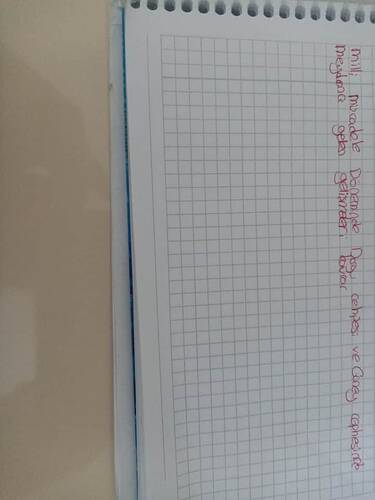 Milli mücadele Döneminde Doğu cephesi ve Güney cephesinde
meydana gelen gelişmeleri kavrar